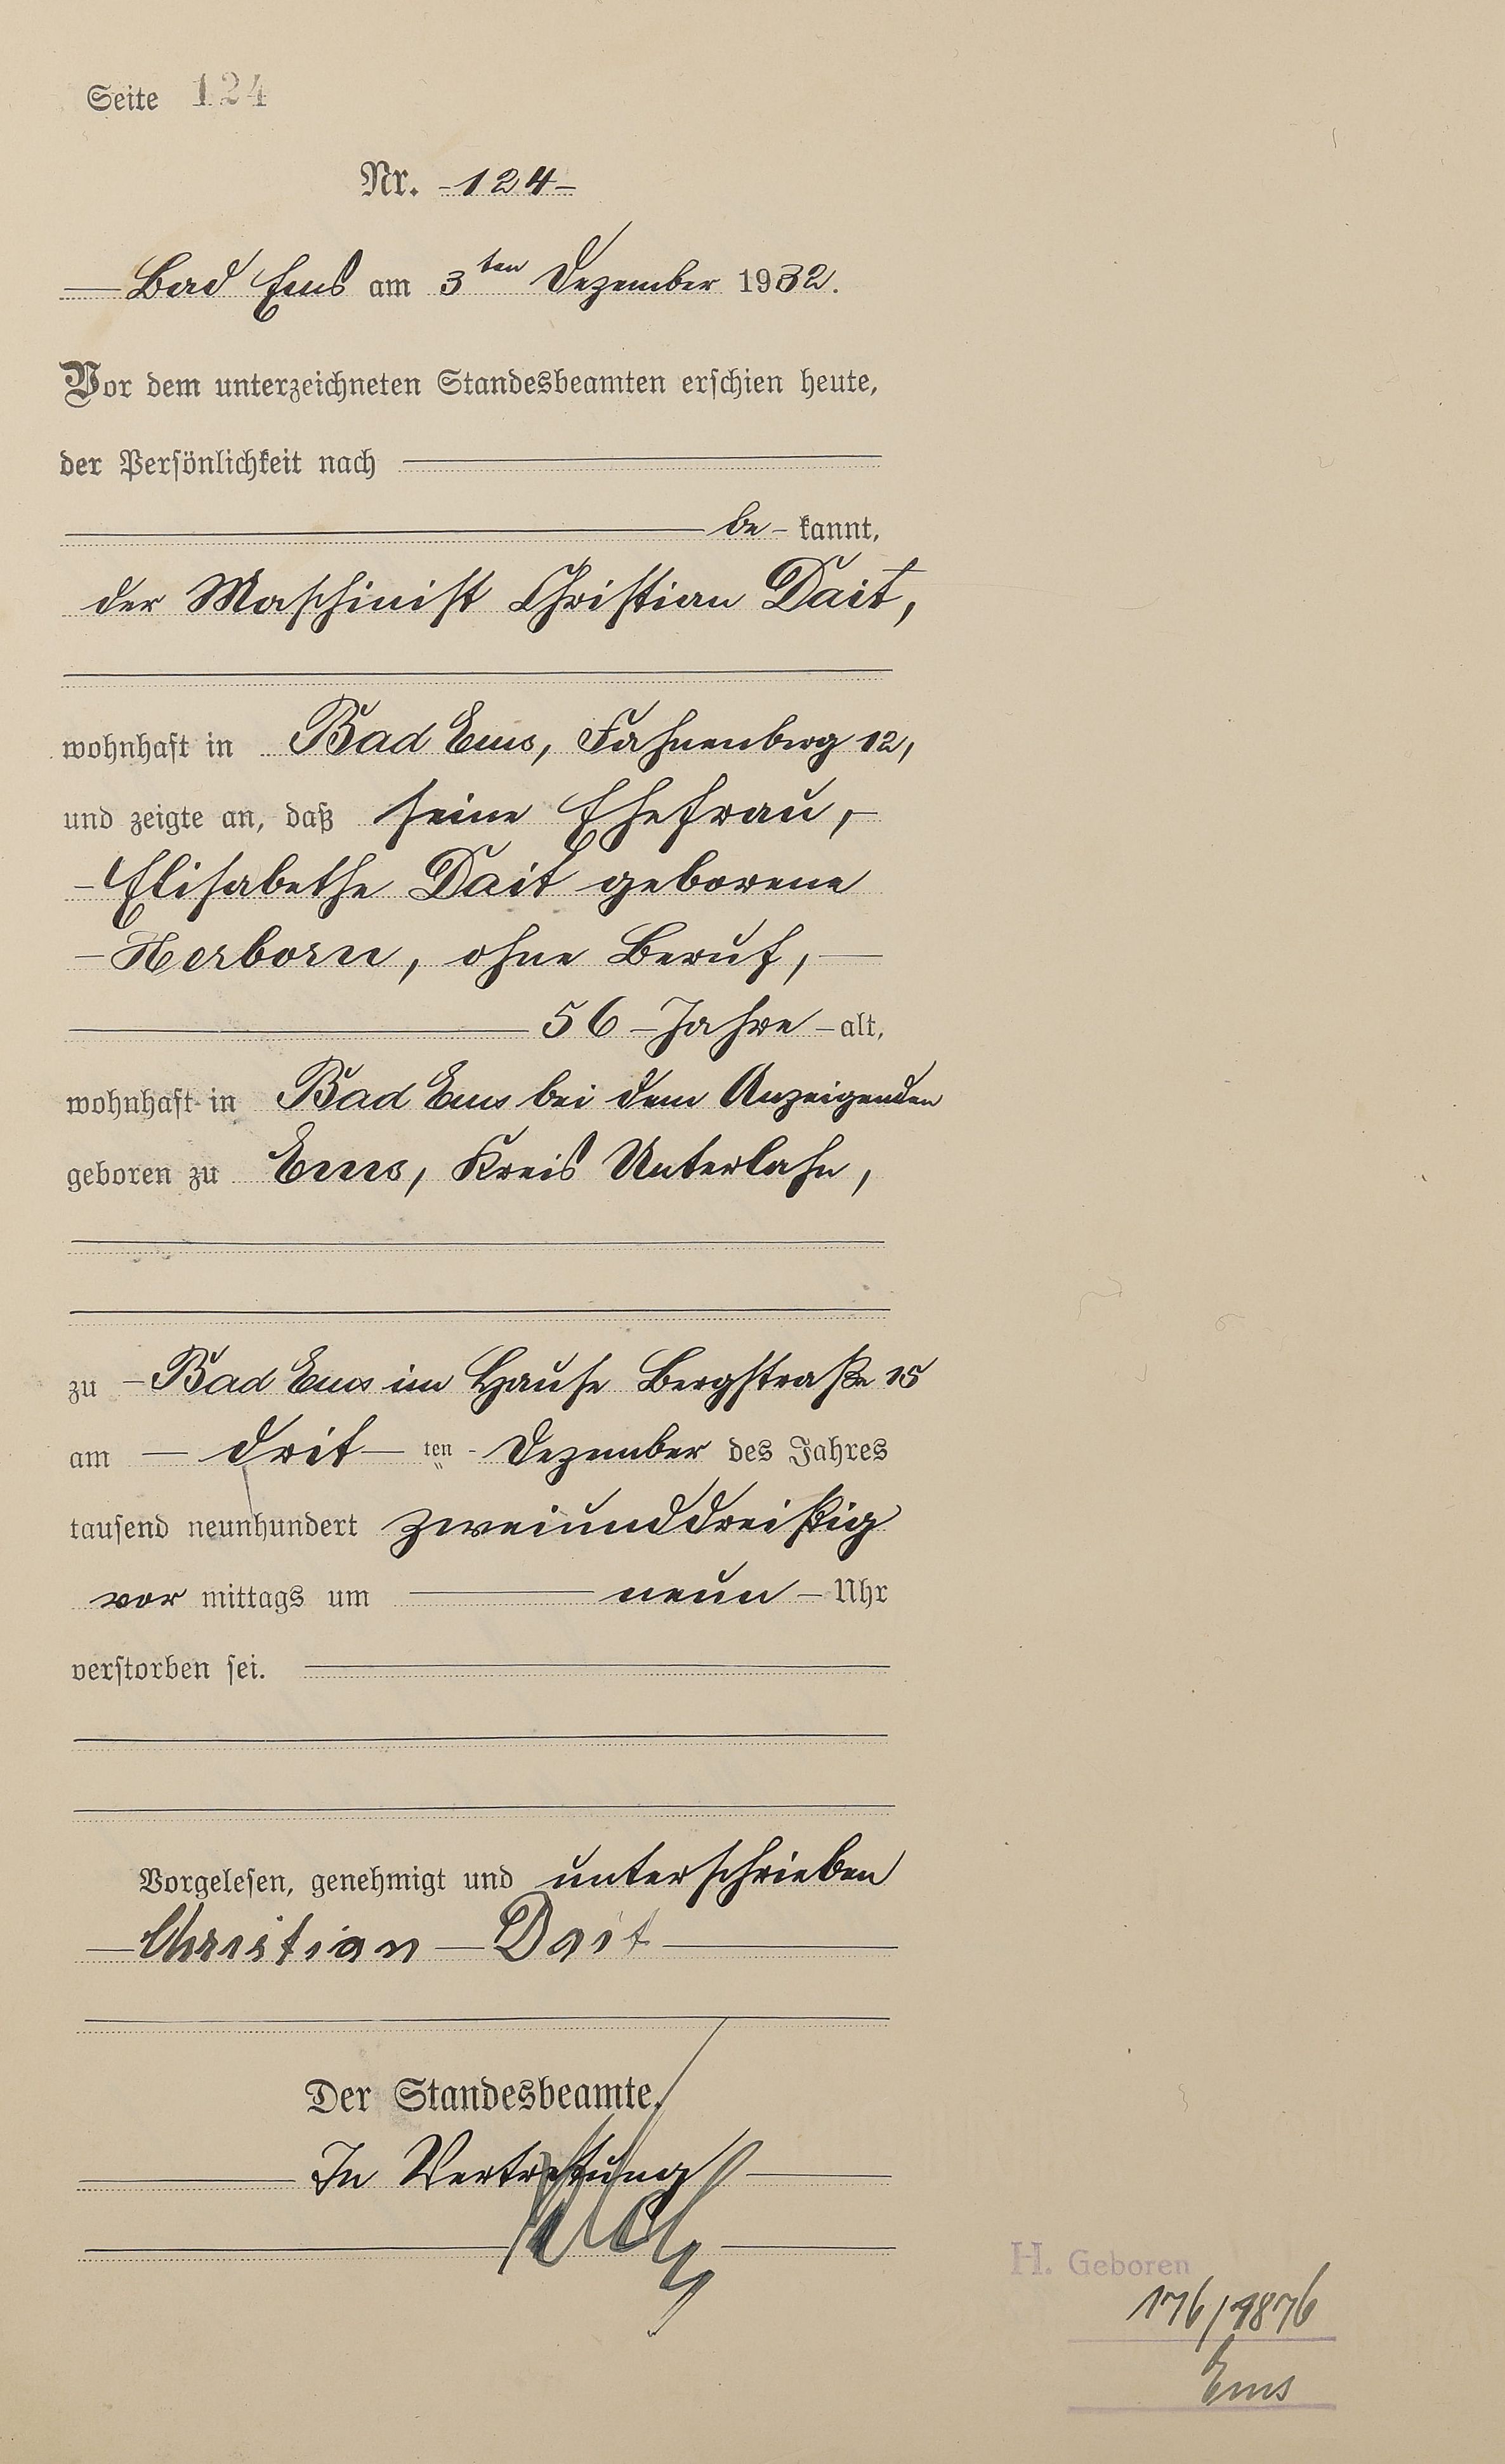 Seite 124
Nr. -124-
Bad Ems am 3ten Dezember 1932.
Vor dem unterzeichneten Standesbeamten erschien heute,
der Persönlichkeit nach
be- kannt,
der Maschinist Christian Dait,
wohnhaft in Bad Ems, Fahnenberg 12,
und zeigte an, daß seine Ehefrau,
Elisabethe Dait geborene
Herborn, ohne Beruf,
56 Jahre alt,
wohnhaft in Bad Ems bei dem Anzeigenden
geboren zu Ems, Kreis Unterlahn,
zu Bad Ems im Hause Bergstraße 15
am drit ten Dezember des Jahres
tausend neunhundert zweiunddreißig
vor mittags um neun Uhr
verstorben sei.
Vorgelesen, genehmigt und unterschrieben
Christian Dait
Der Standesbeamte.
In Vertretung
H. Geboren
176/1876
Ems